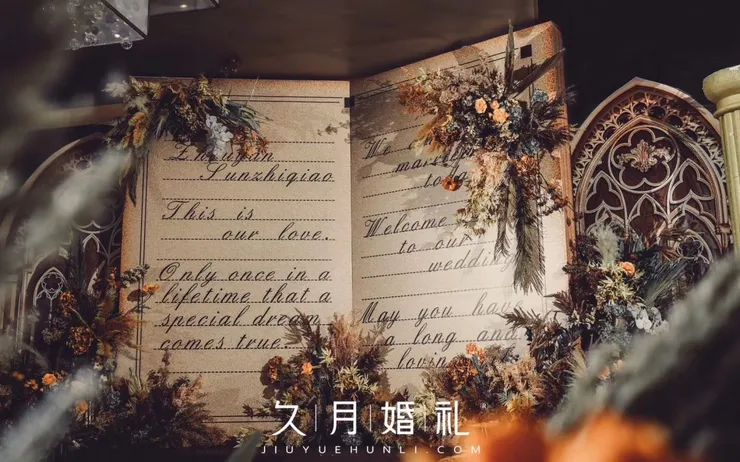 Sunzhiqiao
This is
our love.
Only once in a
lifetime that a
special dream
comes true.
We
Welcome
to our
wedding
May you have
a long and
久月婚礼
JIUYUEHUNLI.COM